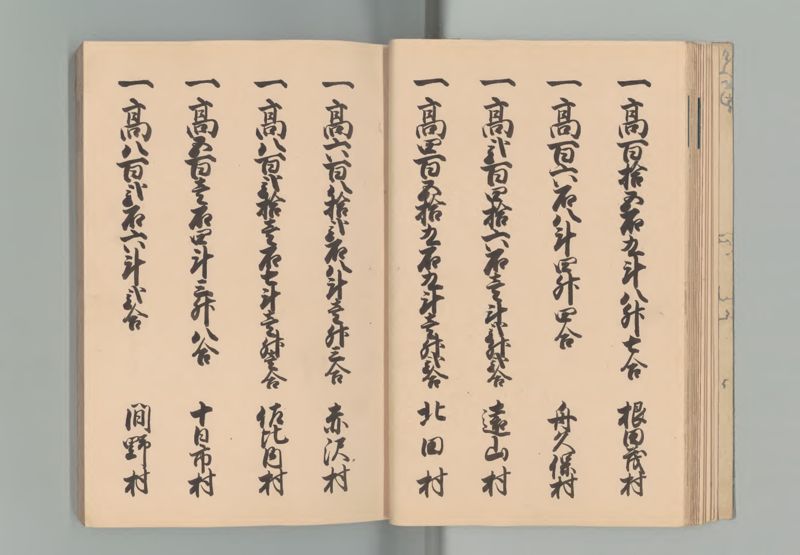 一高百拾五石九斗八升七合 根田茂村
一高百六石八斗四升四合 舟久保村
一高弐百四拾六石壱斗弐升弐合 遠山村
一高四百五拾九石九斗壱升弐合 北田村
一高六百八拾弐石八斗壱升三合 赤沢村
一高八百弐拾壱石七斗壱升壱合 佐比内村
一高五百壱石四斗三升八合 十日市村
一高八百弐石六斗弐合 間野村